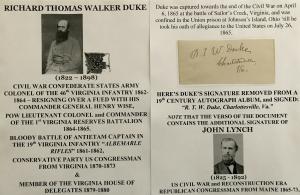 RICHARD THOMAS WALKER DUKE
(1822 - 1898)
CIVIL WAR CONFEDERATE STATES ARMY
COLONEL OF THE 46th VIRGINIA INFANTRY 1862-
1864 – RESIGNING OVER A FUED WITH HIS
COMMANDER GENERAL HENRY WISE,
POW LIEUTENANT COLONEL and COMMANDER
OF THE 1st VIRGINIA RESERVES BATTALION
1864-1865.
BLOODY BATTLE OF ANTIETAM CAPTAIN IN
THE 19th VIRGINIA INFANTRY "ALBEMARLE
RIFLES" 1861-1862,
CONSERVATIVE PARTY US CONGRESSMAN
FROM VIRGINIA 1870-1873
AND
MEMBER OF THE VIRGINIA HOUSE OF
DELEGATES 1879-1880
Duke was captured towards the end of the Civil War on April
6, 1865 at the battle of Sailor's Creek, Virginia, and was
confined in the Union prison at Johnson's Island, Ohio 'till he
took his oath of allegiance to the United States on July 26,
1865.
R. T. W. Duke,
Charlottesville,
Va.
HERE'S DUKE'S SIGNATURE REMOVED FROM A
19th CENTURY AUTOGRAPH ALBUM, and SIGNED:
"R. T. W. Duke, Charlottesville, Va."
NOTE THAT THE VERSO OF THE DOCUMENT
CONTAINS THE ADDITIONAL SIGNATURE OF
JOHN LYNCH
(1825 - 1892)
US CIVIL WAR and RECONSTRUCTION ERA
REPUBLICAN CONGRESSMAN FROM MAINE 1865-73